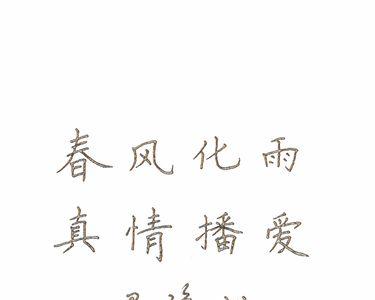 春风化雨
真情播爱